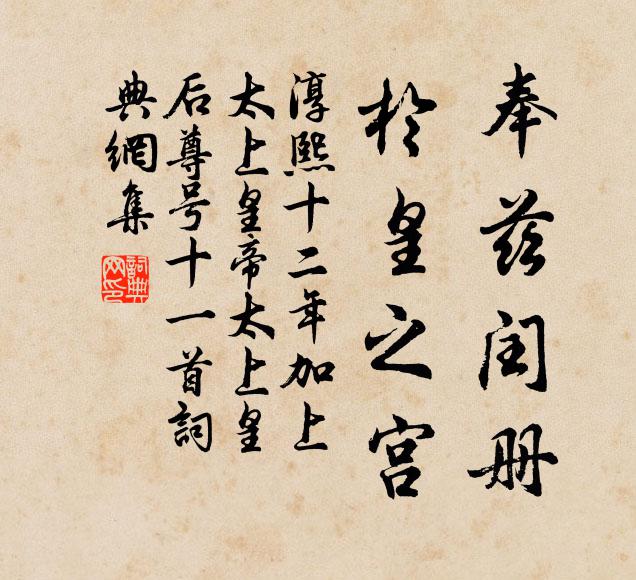 奉兹闰册
於皇之宫
淳熙十二年加上
太上皇帝太上皇
后尊号十一首詞
典網集
詞典網印